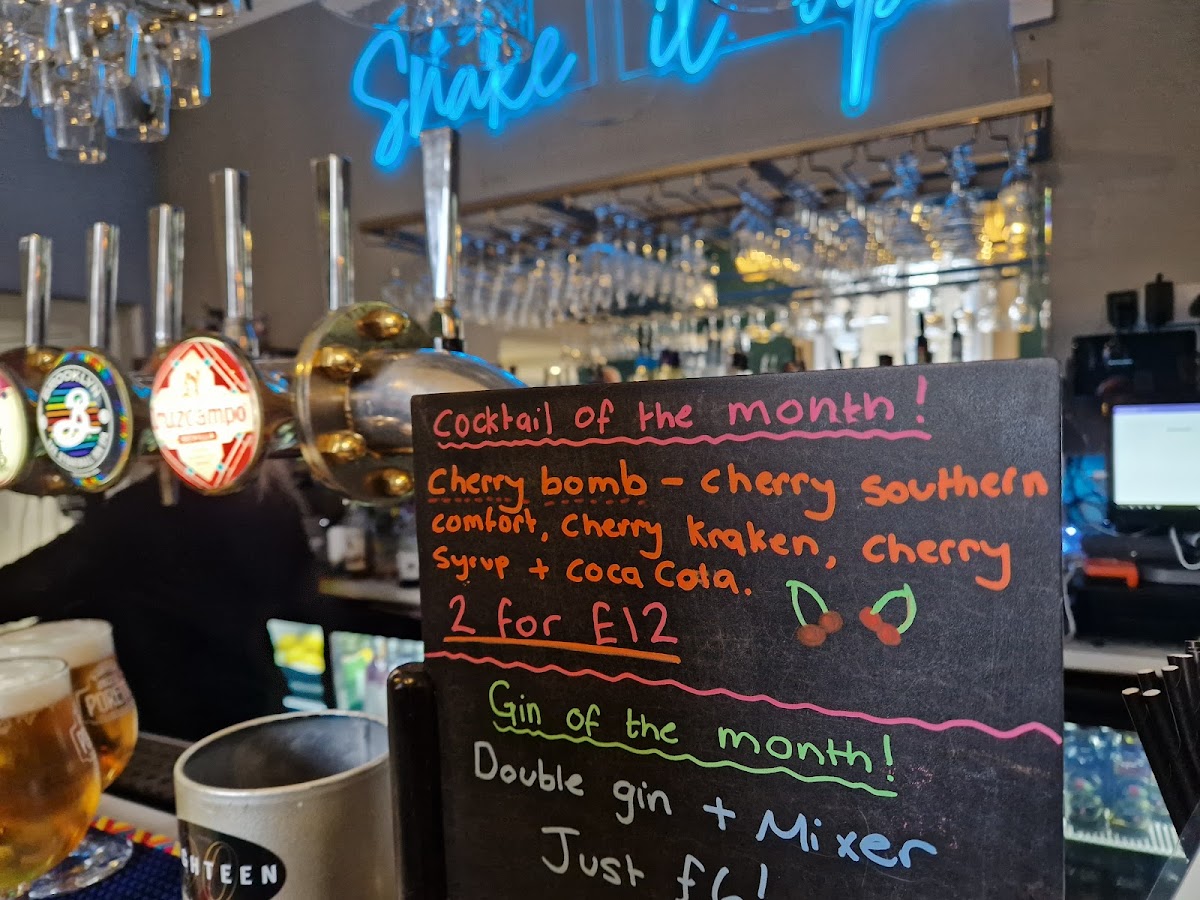 Shake it up
Cocktail of the month!
Cherry bomb - cherry southern
comfort, cherry kraken, cherry
syrup + coca cola.
2 for £12
Gin of the month!
Double gin + Mixer
Just £6!
BROOKLYN
B
CRUZCAMPO
SEVILLA
HTEEN